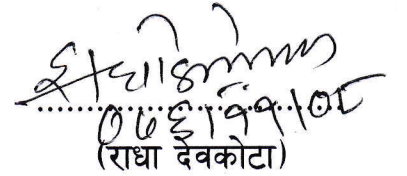 ०७६।११।०८
(राधा देवकोटा)